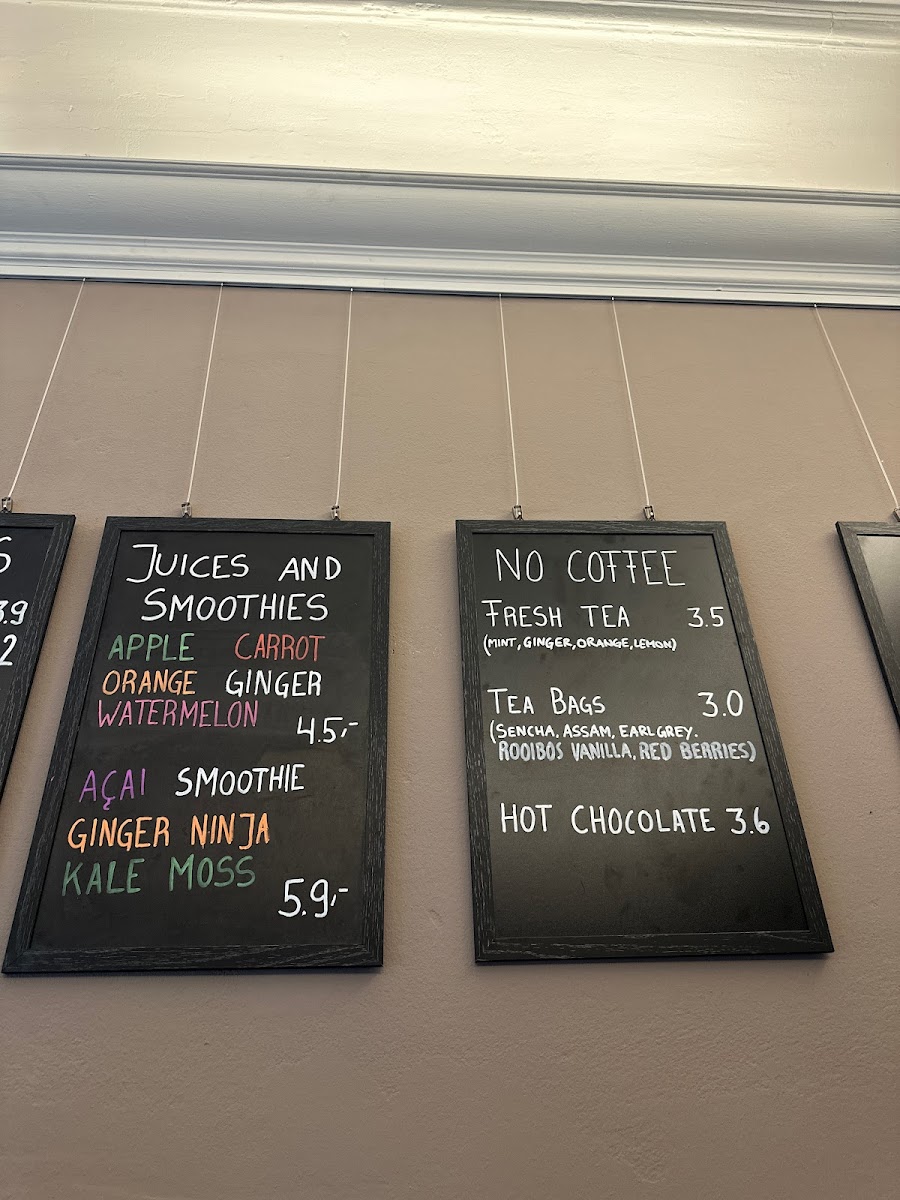 S
3.9
2
JUICES AND
SMOOTHIES
APPLE CARROT
ORANGE GINGER
WATERMELON
4.5,-
AÇAI SMOOTHIE
GINGER NINJA
KALE MOSS
5.9,-
NO COFFEE
FRESH TEA 3.5
(MINT, GINGER, ORANGE, LEMON)
TEA BAGS 3.0
(SENCHA, ASSAM, EARL GREY.
ROOIBOS VANILLA, RED BERRIES)
HOT CHOCOLATE 3.6